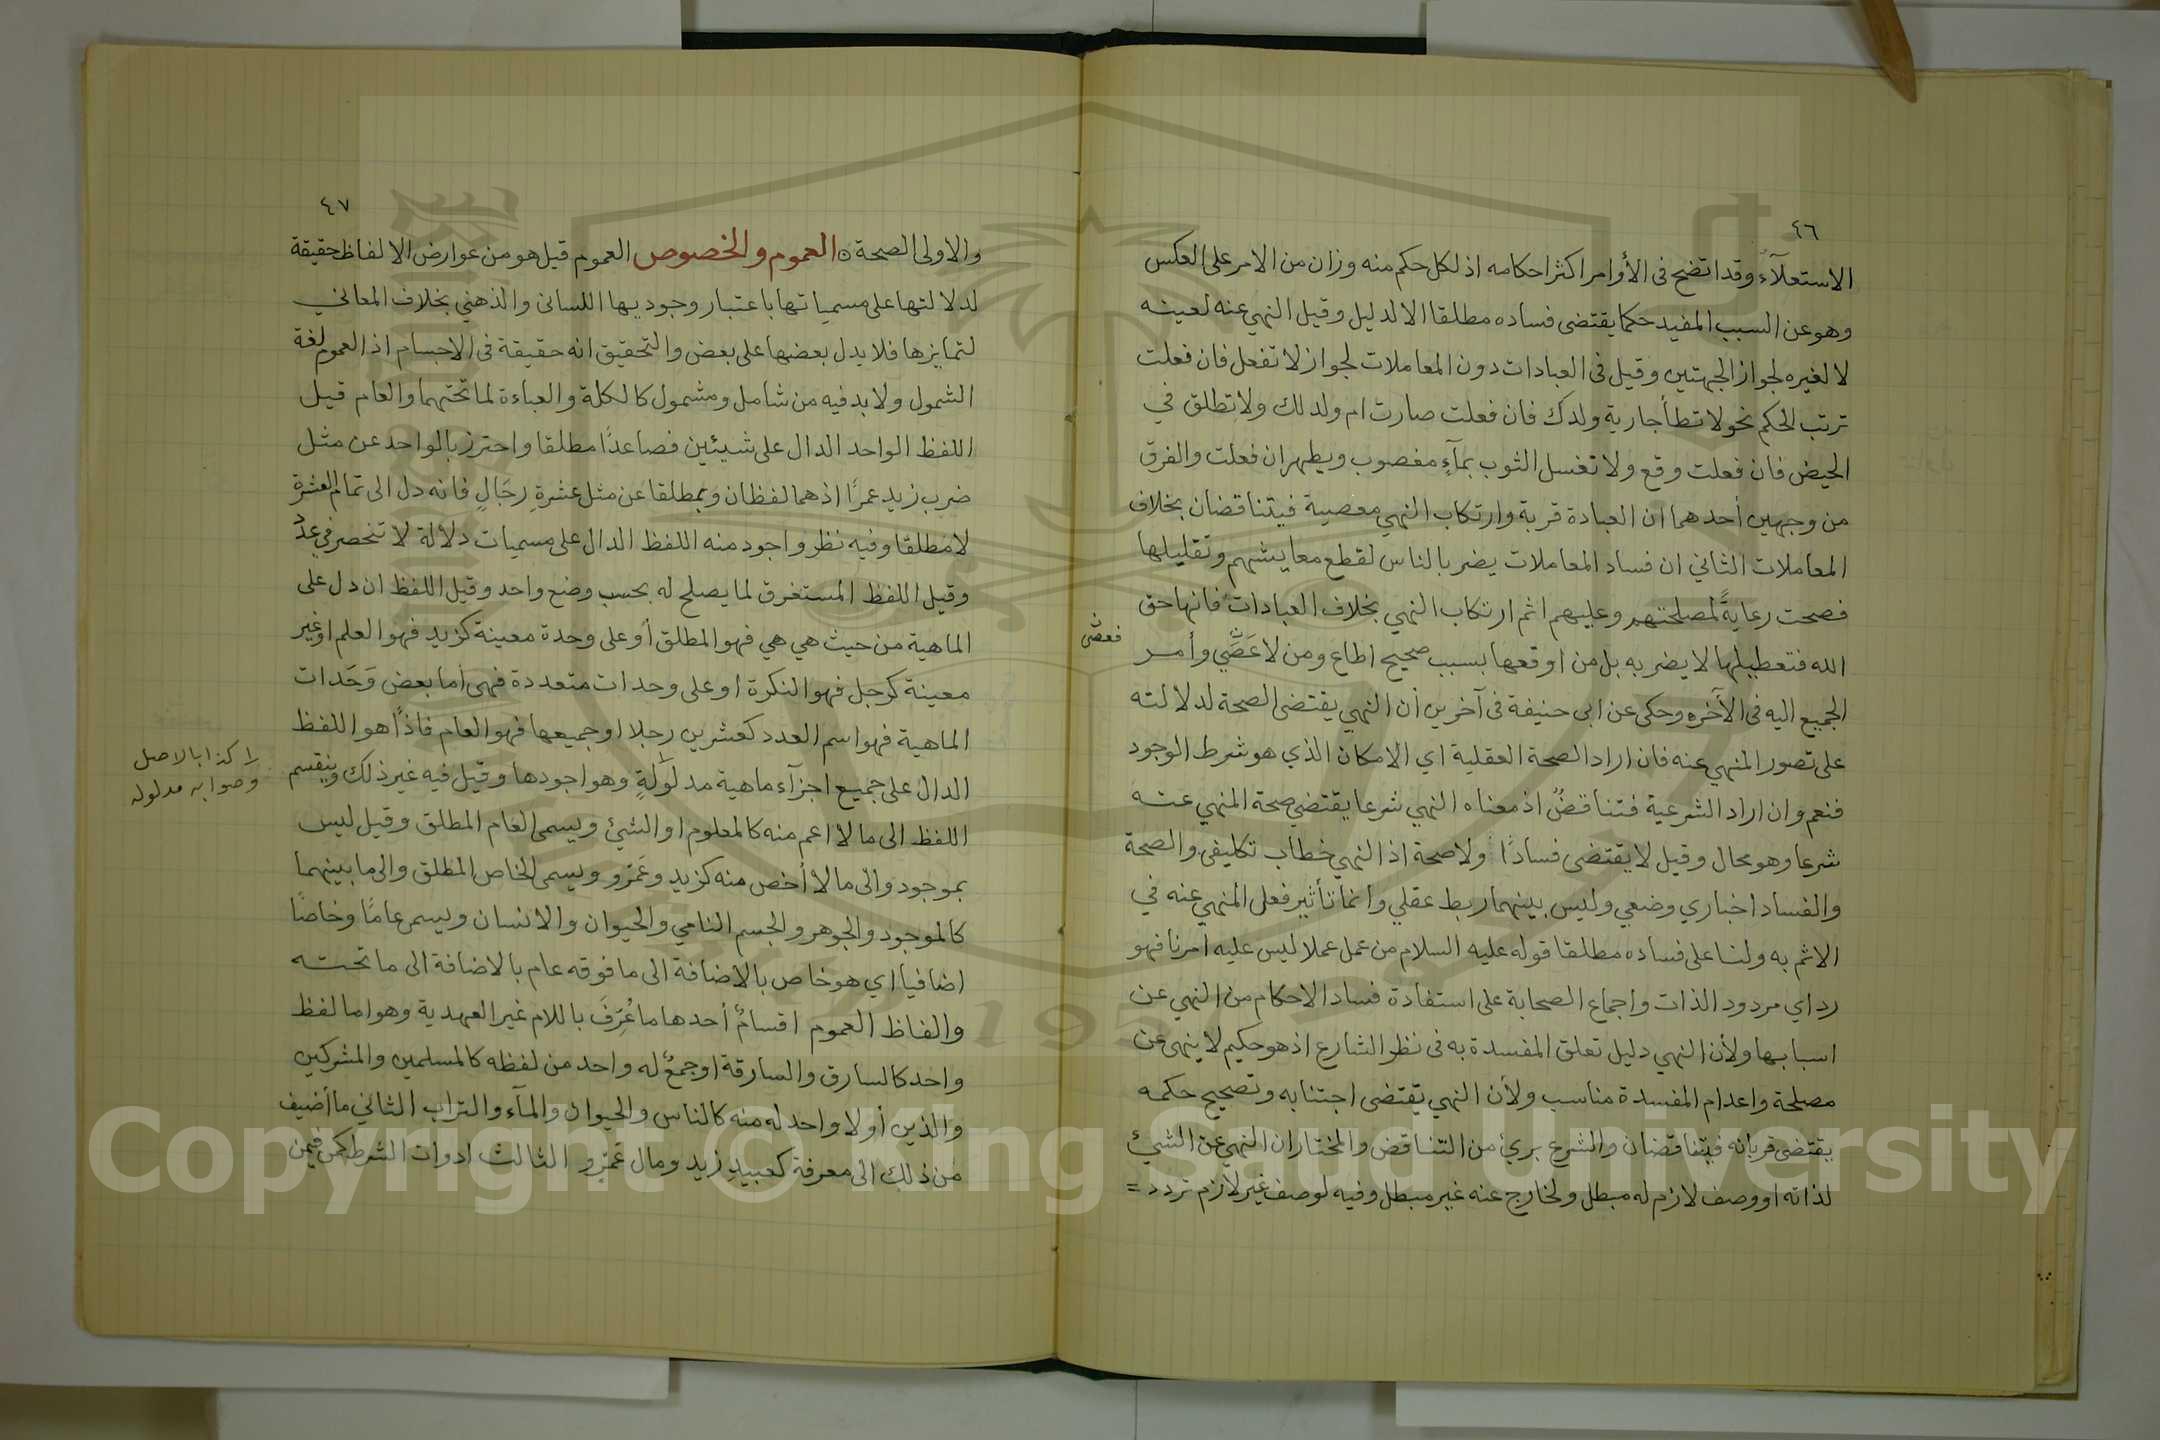 ٤٦
الاستعلآء وقد اتضح فى الأوامر اكثر احكامه اذ لكل حكم منه وزان من الامر على العكس
وهو عن السبب المفيد حكما يقتضى فساده مطلقا الا لدليل وقيل النهي عنه لعينه
لا لغيره لجواز الجهتين وقيل فى العبادات دون المعاملات لجواز لا تفعل فان فعلت
ترتب الحكم نحو لا تطأ جارية ولدك فان فعلت صارت ام ولد لك ولا تطلق في
الحيض فان فعلت وقع ولا تغسل الثوب بمآءٍ مغصوب ويطهر ان فعلت والفرق
من وجهين أحدهما ان العبادة قربة وارتكاب النهي معصية فيتناقضان بخلاف
المعاملات الثاني ان فساد المعاملات يضر بالناس لقطع معايشهم وتقليلها
فصحت رعايةً لمصلحتهم وعليهم اثم ارتكاب النهي بخلاف العبادات فانها حق
الله فتعطيلها لا يضر به بل من اوقعها بسبب صحيح اطاع ومن لا عَصَى وأمر
فعصى
الجميع اليه فى الآخره وحكى عن ابى حنيفة فى آخرين أن النهي يقتضى الصحة لدلالته
على تصور المنهي عنه فان اراد الصحة العقلية اي الامكان الذي هو شرط الوجود
فنعم وان اراد الشرعية فتناقضٌ اذ معناه النهي شرعا يقتضي صحة المنهي عنه
شرعا وهو محال وقيل لا يقتضى فسادًا ولا صحة اذ النهي خطاب تكليفى والصحة
والفساد اخباري وضعي وليس بينهما ربط عقلي وانما تأثير فعل المنهي عنه في
الاثم به ولنا على فساده مطلقا قوله عليه السلام من عمل عملا ليس عليه امرنا فهو
رد اي مردود الذات واجماع الصحابة على استفادة فساد الاحكام من النهي عن
اسبابها ولأن النهي دليل تعلق المفسدة به فى نظر الشارع اذ هو حكيم لا ينهى عن
مصلحة واعدام المفسدة مناسب ولأن النهي يقتضى اجتنابه وتصحيح حكمه
يقتضى قربانه فيتناقضان والشرع بريئ من التناقض والمختار ان النهي عن الشيئ
لذاته او وصف لازم له مبطل ولخارج عنه غير مبطل وفيه لوصف غير لازم تردد =
٤٧
والاولى الصحة ه العموم والخصوص العموم قيل هو من عوارض الالفاظ حقيقة
لدلالتها على مسمياتها باعتبار وجوديها اللسانى والذهني بخلاف المعاني
لتمايزها فلا يدل بعضها على بعض والتحقيق انه حقيقة فى الاجسام اذ العموم لغة
الشمول ولا بد فيه من شامل ومشمول كالكلة والعباءة لما تحتهما والعام قيل
اللفظ الواحد الدال على شيئين فصاعدًا مطلقا واحترز بالواحد عن مثل
ضرب زيد عمرًا اذ هما لفظان وبمطلقا عن مثل عشرةِ رجَالٍ فانه دل الى تمام العشرة
لا مطلقا وفيه نظر واجود منه اللفظ الدال على مسميات دلالة لا تنحصر في عدد
وقيل اللفظ المستغرق لما يصلح له بحسب وضع واحد وقيل اللفظ ان دل على
الماهية من حيث هي هي فهو المطلق أو على وحدة معينة كزيد فهو العلم او غير
معينة كرجل فهو النكرة او على وحدات متعددة فهى أما بعض وَحَدات
الماهية فهو اسم العدد كعشرين رجلا او جميعها فهو العام فاذًا هو اللفظ
الدال على جميع اجزآء ماهية مدلولةٍ وهو اجودها وقيل فيه غير ذلك وينقسم
اللفظ الى ما لا اعم منه كالمعلوم او الشيئ ويسمى العام المطلق وقيل ليس
بموجود والى ما لا أخص منه كزيد وعَمْرو ويسمى الخاص المطلق والى ما بينهما
كالموجود والجوهر والجسم النامي والحيوان والانسان ويسمى عامًا وخاصًا
اضافيا اي هو خاص بالاضافة الى ما فوقه عام بالاضافة الى ما تحته
والفاظ العموم اقسامٌ أحدها ما عُرِّفَ باللام غير العهدية وهو اما لفظ
واحد كالسارق والسارقة او جمعٌ له واحد من لفظه كالمسلمين والمشركين
والذين أو لا واحد له منه كالناس والحيوان والمآء والتراب الثاني ما أضيف
من ذلك الى معرفة كعبيدِ زيد ومال عَمْرٍو الثالث ادوات الشرط كمن فيمن
كذا بالاصل
وصوابه مدلوله
Copyright © King Saud University